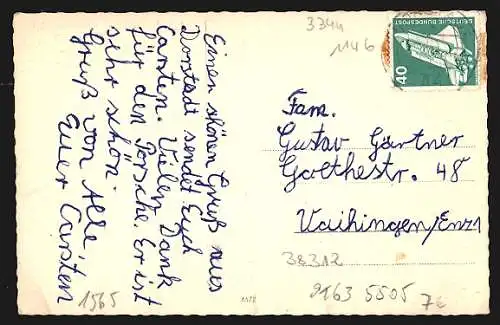 Einen schönen Gruß aus
Dorstadt sendet Euch
Carsten. Vielen Dank
für den Porsche. Er ist
sehr schön.
Gruß von Alle,
Euer Carsten
3344
1146
DEUTSCHE BUNDESPOST
40
Fam.
Gustav Gärtner
Goethestr. 48
Vaihingen/Enz 1
38312
9163 5505
7€
1565